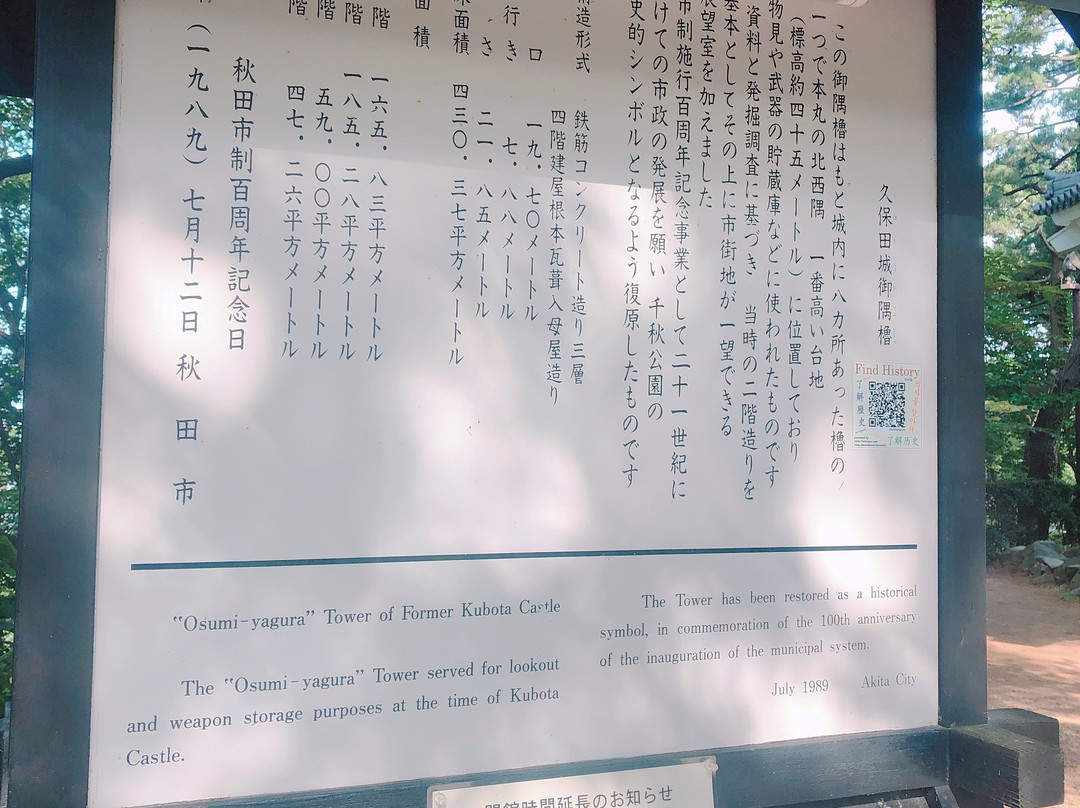 久保田城御隅櫓
この御隅櫓はもと城内に八カ所あった櫓の
一つで本丸の北西隅 一番高い台地
(標高約四十五メートル)に位置しており
物見や武器の貯蔵庫などに使われたものです
資料と発掘調査に基づき 当時の二階造りを
基本としてその上に市街地が一望できる
展望室を加えました
市制施行百周年記念事業として二十一世紀に
けての市政の発展を願い 千秋公園の
史的シンボルとなるよう復原したものです
造形式 鉄筋コンクリート造り三層
四階建屋根本瓦葺入母屋造り
口 一九・七〇メートル
行き 七・八八メートル
さ 二一・八五メートル
面積 四三〇・三七平方メートル
面積
階 一六五・八三平方メートル
階 一八五・二八平方メートル
階 五九・〇〇平方メートル
階 四七・二六平方メートル
秋田市制百周年記念日
(一九八九)七月十二日 秋田市
Find History
了解歴史
了解历史
"Osumi-yagura" Tower of Former Kubota Castle
The "Osumi-yagura" Tower served for lookout
and weapon storage purposes at the time of Kubota
Castle.
The Tower has been restored as a historical
symbol, in commemoration of the 100th anniversary
of the inauguration of the municipal system.
July 1989 Akita City
開館時間延長のお知らせ